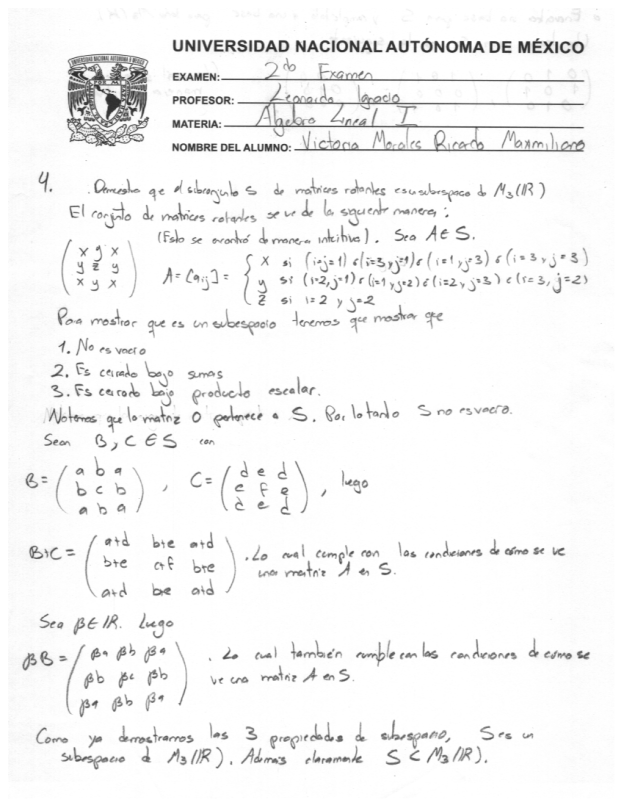 UNIVERSIDAD NACIONAL AUTÓNOMA DE MÉXICO
EXAMEN: 2do Examen
PROFESOR: Leonardo Ignacio
MATERIA: Álgebra Lineal I
NOMBRE DEL ALUMNO: Victoria Morales Ricardo Maxmiliano
4. Demuestra que el subconjunto S de matrices rotantes es un subespacio de M₃(IR)
El conjunto de matrices rotantes se ve de la siguiente manera:
(Esto se encontró de manera intuitiva). Sea A ∈ S.
x y x
y z y
x y x
A = [aij] =
x si (i=j=1) ó (i=3 y j=1) ó (i=1 y j=3) ó (i=3 y j=3)
y si (i=2, j=1) ó (i=1 y j=2) ó (i=2 y j=3) ó (i=3, j=2)
z si i=2 y j=2
Para mostrar que es un subespacio tenemos que mostrar que
1. No es vacío
2. Es cerrado bajo sumas
3. Es cerrado bajo producto escalar.
Notemos que la matriz 0 pertenece a S. Por lo tanto S no es vacío.
Sean B, C ∈ S con
B = ( a b a
b c b
a b a ) , C = ( d e d
e f e
d e d ) , luego
B+C = ( a+d b+e a+d
b+e c+f b+e
a+d b+e a+d ) . Lo cual cumple con las condiciones de cómo se ve
una matriz A en S.
Sea β ∈ IR. Luego
βB = ( βa βb βa
βb βc βb
βa βb βa ) . Lo cual también cumple con las condiciones de como se
ve una matriz A en S.
Como ya demostramos las 3 propiedades de subespacio, S es un
subespacio de M₃(IR). Además claramente S ⊂ M₃(IR).